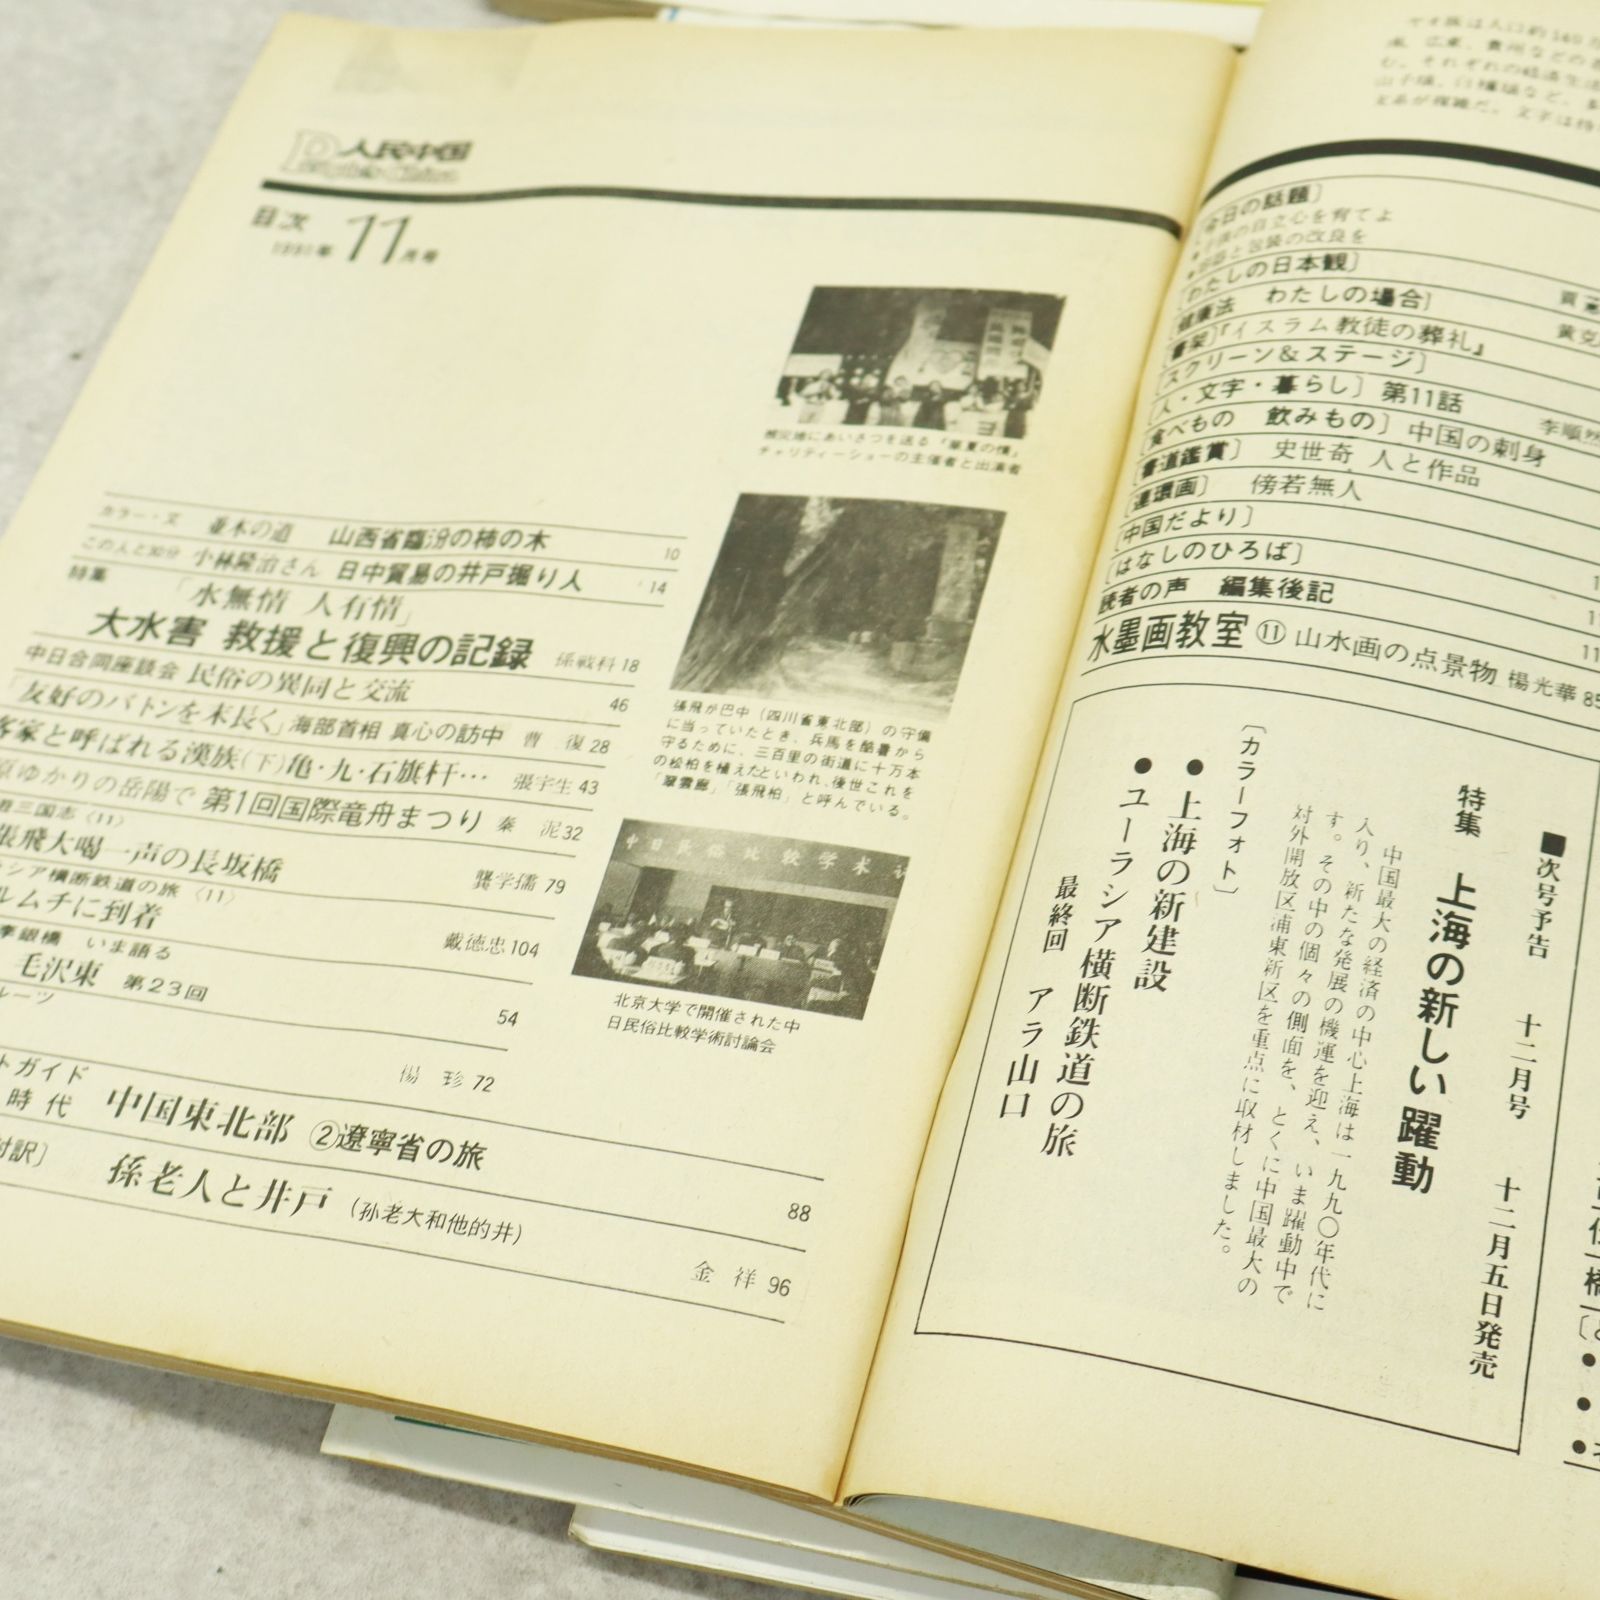 人民中国
目次
1991年 11月号
被災地にあいさつを送る「華夏の情」
チャリティーショーの主催者と出演者
カラー・文 並木の道 山西省臨汾の柿の木 10
この人と30分 小林隆治さん 日中貿易の井戸掘り人 14
特集 「水無情 人有情」
大水害 救援と復興の記録 係戦科 18
中日合同座談会 民俗の異同と交流 46
「友好のバトンを末長く」海部首相 真心の訪中 曹 復 28
客家と呼ばれる漢族(下) 亀・九・石旗杆… 張宇生 43
原ゆかりの岳陽で 第1回国際竜舟まつり 秦 泥 32
三国志〈11〉
張飛大喝一声の長坂橋 龔学孺 79
シア横断鉄道の旅〈11〉
ルムチに到着 戴徳忠 104
李銀橋 いま語る
毛沢東 第23回 54
ルーツ
楊 珍 72
トガイド
時代 中国東北部 ②遼寧省の旅 88
対訳］ 孫老人と井戸 (孙老大和他的井) 金 祥 96
張飛が巴中（四川省東北部）の守備
に当っていたとき、兵馬を酷暑から
守るために、三百里の街道に十万本
の松柏を植えたといわれ、後世これを
「翠雲廊」「張飛柏」と呼んでいる。
中日民俗比較学术讨
北京大学で開催された中
日民俗比較学術討論会
［今日の話題］
●子供の自立心を育てよ
包装の改良を
［わたしの日本観］
［健康法 わたしの場合］
［書架］『イスラム教徒の葬礼』
［スクリーン＆ステージ］
［人・文字・暮らし］ 第11話 李順然
［食べもの 飲みもの］ 中国の刺身
［書道鑑賞］ 史世奇 人と作品
［連環画］ 傍若無人
［中国だより］
［はなしのひろば］
読者の声 編集後記
水墨画教室 ⑪ 山水画の点景物 楊光華 85
■次号予告 十二月号 十二月五日発売
特集 上海の新しい躍動
中国最大の経済の中心上海は一九九〇年代に
入り、新たな発展の機運を迎え、いま躍動中で
す。その中の個々の側面を、とくに中国最大の
対外開放区浦東新区を重点に取材しました。
［カラーフォト］
●上海の新建設
●ユーラシア横断鉄道の旅
最終回 アラ山口